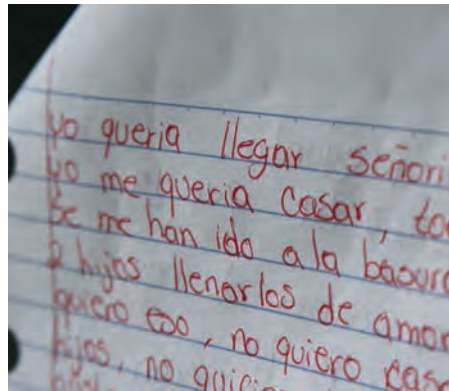 yo queria llegar señori
yo me queria casar, to
se me han ido a la basura
2 hijos llenarlos de amor
quiero eso, no quiero casa
hijos, no